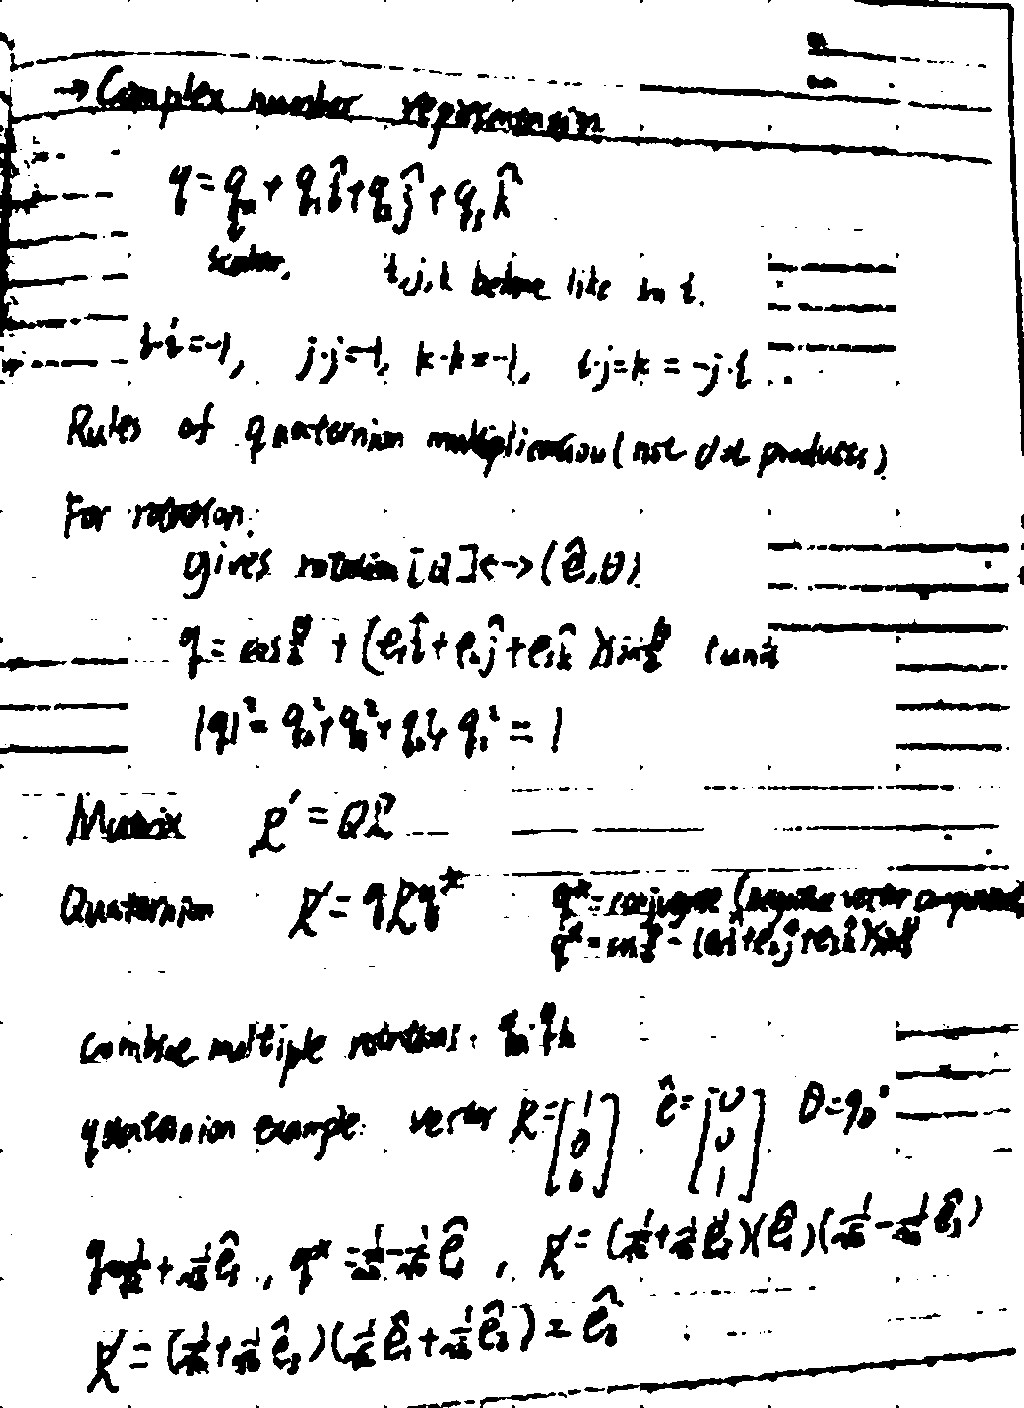 → Complex number represension
q = q₀ + q₁î + q₂ĵ + q₃k̂
scalar. i,j,k behave like in i.
i·i=-1, j·j=-1, k·k=-1, i·j=k=-j·i
Rules of quaternion multiplication (not dot products)
For rotation:
gives rotation [Q]<->(ê,θ)
q = cos θ/2 + (e₁î+e₂ĵ+e₃k̂)sin θ/2 (unit
|q|² = q₀²+q₁²+q₂²+q₃² = 1
Matrix r' = Qr
Quaternion r' = q r q* q* = conjugate (negative vector components
q* = cos θ/2 - (e₁î+e₂ĵ+e₃k̂)sin θ/2
Combine multiple rotations:
quaternion example: vector r=[1 0 0] ê=[0 0 1] θ=90°
q=1/√2+1/√2 ê₃, q*=1/√2-1/√2 ê₃, r'=(1/√2+1/√2 ê₃)(ê₁)(1/√2-1/√2 ê₃)
r'=(1/√2+1/√2 ê₃)(1/√2 ê₁+1/√2 ê₂) = ê₂